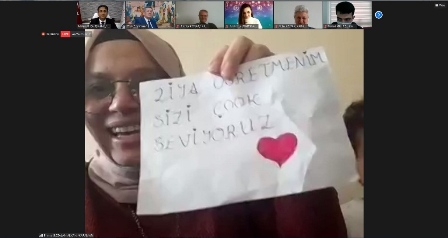 ZİYA ÖĞRETMENİM
SİZİ ÇOOK
SEVİYORUZ